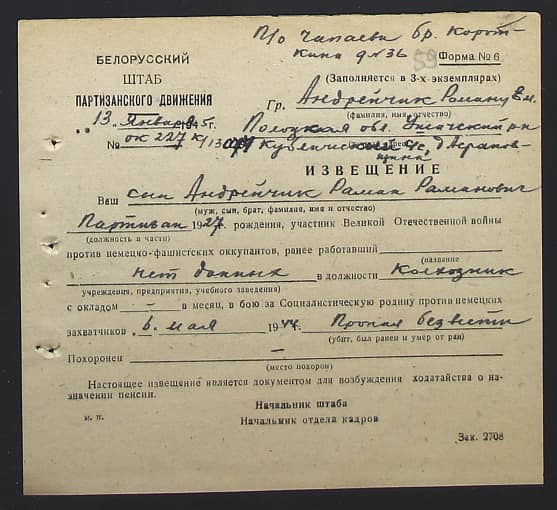 П/о Чапаева бр. Корот-
кина д № 36 59
БЕЛОРУССКИЙ
ШТАБ
ПАРТИЗАНСКОГО ДВИЖЕНИЯ
Форма № 6
(Заполняется в 3-х экземплярах)
Гр. Андрейчик Роману Ем.
(фамилия, имя, отчество)
„13„ Января 1945г.
Полоцкая обл. Ушачский р-н
№ ок 227 к/13077
Кубличский с/с, д Веранов-
щина
ИЗВЕЩЕНИЕ
Ваш сын Андрейчик Раман Раманович
(муж, сын, брат, фамилия, имя и отчество)
Партизан 1927г. рождения, участник Великой Отечественной войны
(должность в части)
против немецко-фашистских оккупантов, ранее работавший
(название
нет данных в должности Колхозник
учреждения, предприятия, учебного заведения)
с окладом — в месяц, в бою за Социалистическую родину против немецких
захватчиков „6„ мая 1944г. Пропал безвести
(убит, был ранен и умер от ран)
Похоронен —
(место похорон)
Настоящее извещение является документом для возбуждения ходатайства о на-
значении пенсии.
Начальник штаба
м. п. Начальник отдела кадров
Зак. 2708